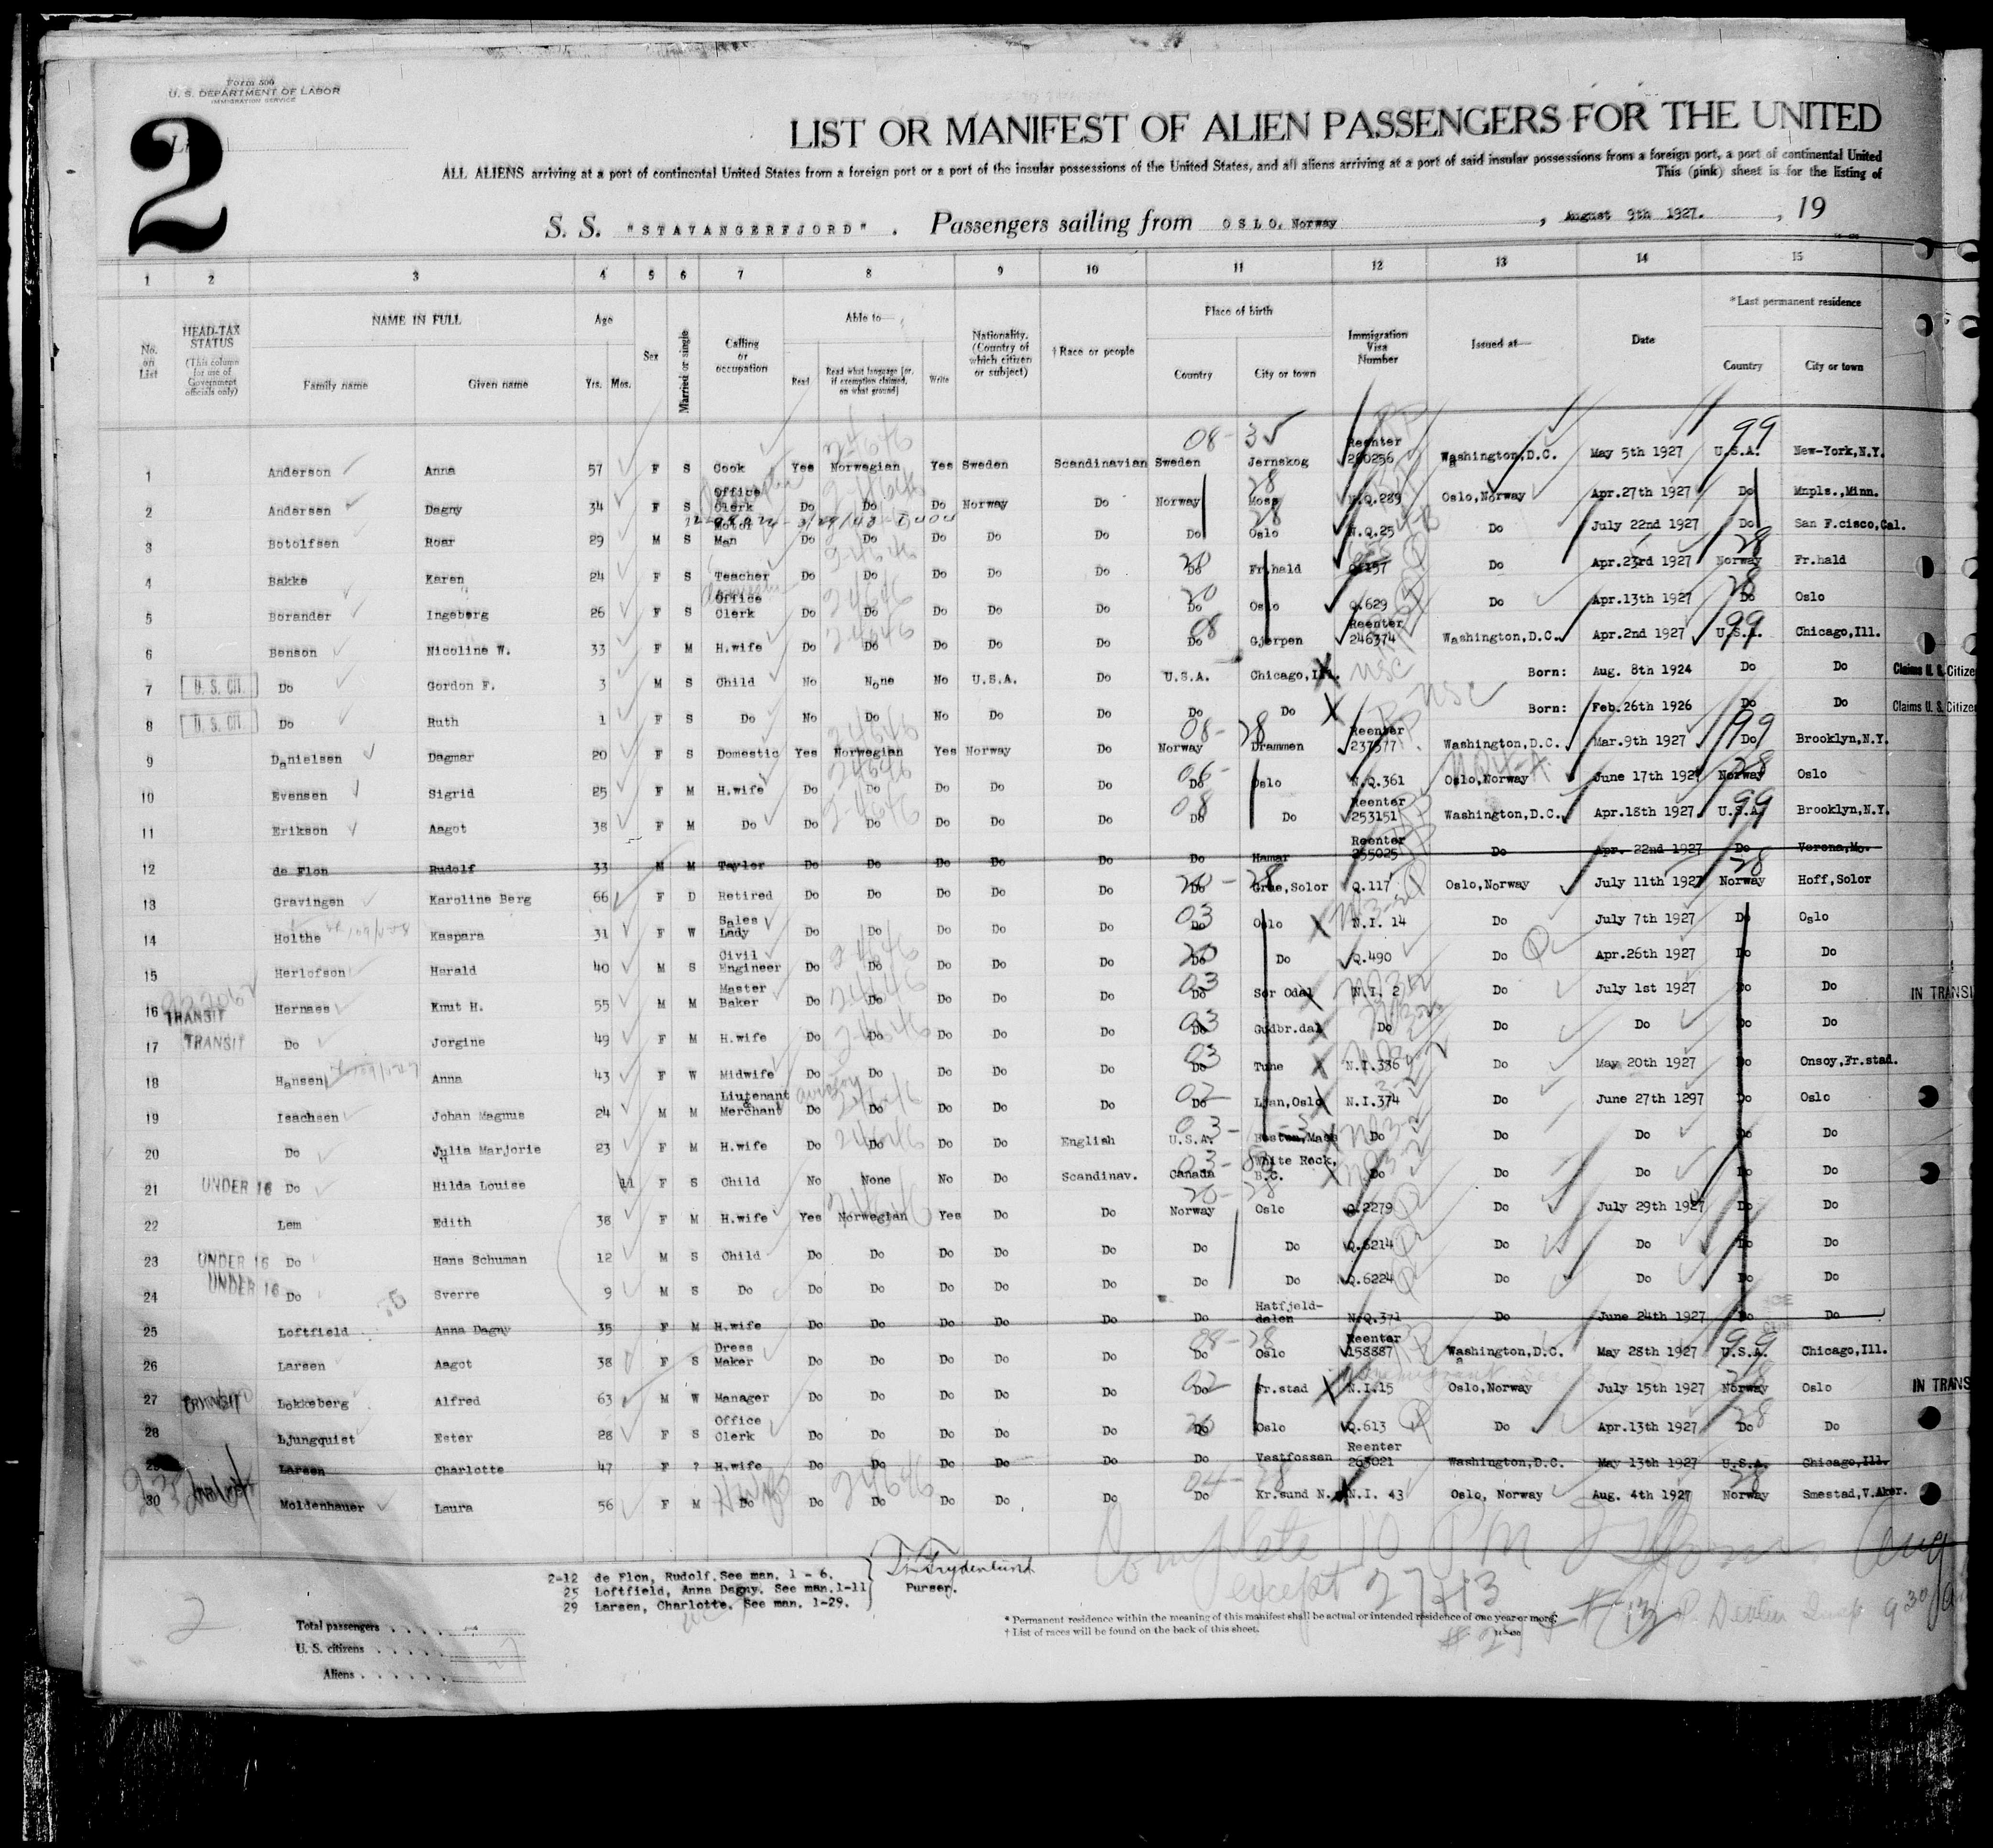 Form 500
U. S. DEPARTMENT OF LABOR
IMMIGRATION SERVICE
2
LIST OR MANIFEST OF ALIEN PASSENGERS FOR THE UNITED
ALL ALIENS arriving at a port of continental United States from a foreign port or a port of the insular possessions of the United States, and all aliens arriving at a port of said insular possessions from a foreign port, a port of continental United
This (pink) sheet is for the listing of
S. S. "STAVANGERFJORD" . Passengers sailing from OSLO, Norway , August 9th 1927. , 19
1 2 3 4 5 6 7 8 9 10 11 12 13 14 15
No. on List HEAD-TAX STATUS (This column for use of Government officials only) NAME IN FULL Family name Given name Age Yrs. Mos. Sex Married or single Calling or occupation Able to— Read Read what language [or, if exemption claimed, on what ground] Write Nationality. (Country of which citizen or subject) † Race or people Place of birth Country City or town Immigration Visa Number Issued at— Date *Last permanent residence Country City or town
1 Anderson Anna 57 F S Cook Yes Norwegian Yes Sweden Scandinavian Sweden Jernskog Reenter 280256 Washington,D.C. May 5th 1927 U.S.A. New-York,N.Y.
2 Andersen Dagny 34 F S Office Clerk Do Do Do Norway Do Norway Moss N.Q.289 Oslo,Norway Apr.27th 1927 Do Mnpls.,Minn.
3 Botolfsen Roar 29 M S Motor Man Do Do Do Do Do Do Oslo N.Q.25 Do July 22nd 1927 Do San F.cisco,Cal.
4 Bakke Karen 24 F S Teacher Do Do Do Do Do Do Fr.hald Do Apr.23rd 1927 Norway Fr.hald
5 Borander Ingeborg 26 F S Office Clerk Do Do Do Do Do Do Oslo Q.629 Do Apr.13th 1927 Do Oslo
6 Benson Nicoline W. 33 F M H.wife Do Do Do Do Do Do Gjerpen Reenter 246374 Washington,D.C. Apr.2nd 1927 U.S.A. Chicago,Ill.
7 U. S. CIT. Do Gordon F. 3 M S Child No None No U.S.A. Do U.S.A. Chicago,Ill. USC Born: Aug. 8th 1924 Do Do Claims U. S. Citize
8 U. S. CIT. Do Ruth 1 F S Do No Do No Do Do Do Do USC Born: Feb.26th 1926 Do Do Claims U. S. Citize
9 Danielsen Dagmar 20 F S Domestic Yes Norwegian Yes Norway Do Norway Drammen Reenter 237377 Washington,D.C. Mar.9th 1927 Do Brooklyn,N.Y.
10 Evensen Sigrid 25 F M H.wife Do Do Do Do Do Do Oslo N.Q.361 Oslo,Norway June 17th 1927 Norway Oslo
11 Erikson Aagot 38 F M Do Do Do Do Do Do Do Do Reenter 253151 Washington,D.C. Apr.18th 1927 U.S.A. Brooklyn,N.Y.
12 de Flon Rudolf 33 M M Taylor Do Do Do Do Do Do Hamar Reenter 255025 Do Apr. 22nd 1927 Do Verona,Mo.
13 Gravingen Karoline Berg 66 F D Retired Do Do Do Do Do Do Grue,Solor Q.117 Oslo,Norway July 11th 1927 Norway Hoff,Solor
14 Holthe Kaspara 31 F W Sales Lady Do Do Do Do Do Do Oslo N.I. 14 Do July 7th 1927 Do Oslo
15 Herlofson Harald 40 M S Civil Engineer Do Do Do Do Do Do Do Q.490 Do Apr.26th 1927 Do Do
16 TRANSIT Hernaes Knut H. 55 M M Master Baker Do Do Do Do Do Do Sør Odal N.I. 2 Do July 1st 1927 Do Do IN TRANSI
17 TRANSIT Do Jorgine 49 F M H.wife Do Do Do Do Do Do Gudbr.dal Do Do Do Do Do
18 Hansen Anna 43 F W Midwife Do Do Do Do Do Do Tune N.I.336 Do May 20th 1927 Do Onsoy,Fr.stad.
19 Isachsen Johan Magnus 24 M M Liutenant & Merchant Do Do Do Do Do Do Ljan,Oslo N.I.374 Do June 27th 1297 Do Oslo
20 Do Julia Marjorie 23 F M H.wife Do Do Do Do English U.S.A. Boston,Mass Do Do Do Do Do
21 UNDER 16 Do Hilda Louise 11 F S Child No None No Do Scandinav. Canada White Rock, B.C. Do Do Do Do Do
22 Lem Edith 38 F M H.wife Yes Norwegian Yes Do Do Norway Oslo Q.2279 Do July 29th 1927 Do Do
23 UNDER 16 Do Hans Schuman 12 M S Child Do Do Do Do Do Do Do Q.6214 Do Do Do Do
24 UNDER 16 Do Sverre 9 M S Do Do Do Do Do Do Do Do Q.6224 Do Do Do Do
25 Loftfield Anna Dagny 35 F M H.wife Do Do Do Do Do Do Hatfjeld-dalen N.Q.371 Do June 24th 1927 Do Do
26 Larsen Aagot 38 F S Dress Maker Do Do Do Do Do Do Oslo Reenter 158887 Washington,D.C. May 28th 1927 U.S.A. Chicago,Ill.
27 TRANSIT Lokkeberg Alfred 63 M W Manager Do Do Do Do Do Do Fr.stad N.I.15 Oslo,Norway July 15th 1927 Norway Oslo IN TRANS
28 Ljungquist Ester 28 F S Office Clerk Do Do Do Do Do Do Oslo Q.613 Do Apr.13th 1927 Do Do
29 Larsen Charlotte 47 F ? H.wife Do Do Do Do Do Do Vestfossen Reenter 263021 Washington,D.C. May 13th 1927 U.S.A. Chicago,Ill.
30 Moldenhauer Laura 56 F M Do Do Do Do Do Do Do Kr.sund N. N.I. 43 Oslo, Norway Aug. 4th 1927 Norway Smestad,V.Aker.
Complete 10 PM
except 27 #13
2-12 de Flon, Rudolf. See man. 1 - 6.
25 Loftfield, Anna Dagny. See man.1-11
29 Larsen, Charlotte. See man. 1-29.
Purser.
2
Total passengers . . . .
U. S. citizens . . . . .
Aliens . . . . . .
* Permanent residence within the meaning of this manifest shall be actual or intended residence of one year or more.
† List of races will be found on the back of this sheet.